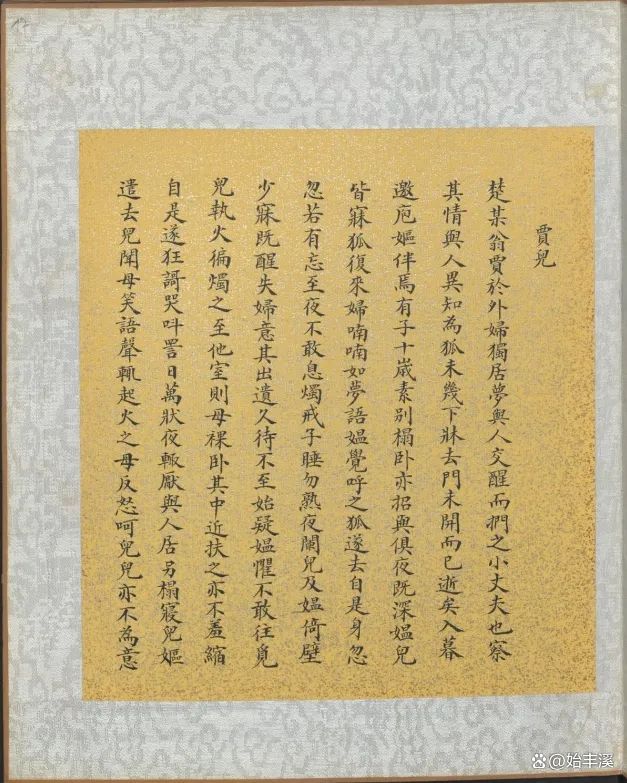 賈兒
楚某翁賈於外婦獨居夢與人交醒而捫之小丈夫也察
其情與人異知為狐未幾下牀去門未開而已逝矣入暮
邀庖嫗伴焉有子十歲素別榻臥亦招與俱夜既深媼兒
皆寐狐復來婦喃喃如夢語媼覺呼之狐遂去自是身忽
忽若有忘至夜不敢息燭戒子睡勿熟夜闌兒及媼倚壁
少寐既醒失婦意其出遺久待不至始疑媼懼不敢往覓
兒執火徧燭之至他室則母裸臥其中近扶之亦不羞縮
自是遂狂謌哭叫詈日萬狀夜輙厭與人居另榻寢兒嫗
遣去兒聞母笑語聲輒起火之母反怒呵兒兒亦不為意
@始丰溪